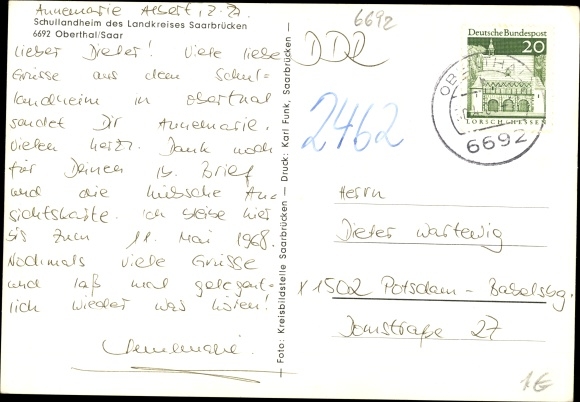 Annemarie Albert, z. Zt.
Schullandheim des Landkreises Saarbrücken
6692 Oberthal/Saar
Lieber Dieter! Viele liebe
Grüsse aus dem Schul-
landheim in Oberthal
sendet Dir Annemarie.
Vielen herzl. Dank noch
für Deinen lb. Brief
und die hübsche An-
sichtskarte. Ich bleibe hier
bis zum 11. Mai 1968.
Nochmals viele Grüsse
und laß mal gelegent-
lich wieder was hören!
Annemarie.
Foto: Kreisbildstelle Saarbrücken — Druck: Karl Funk, Saarbrücken
6692
DDR
2462
Deutsche Bundespost
20
LORSCH/HESSEN
OBERTHAL
6692
Herrn
Dieter Wartewig
X 1502 Potsdam - Babelsbg.
Domstraße 27
1€